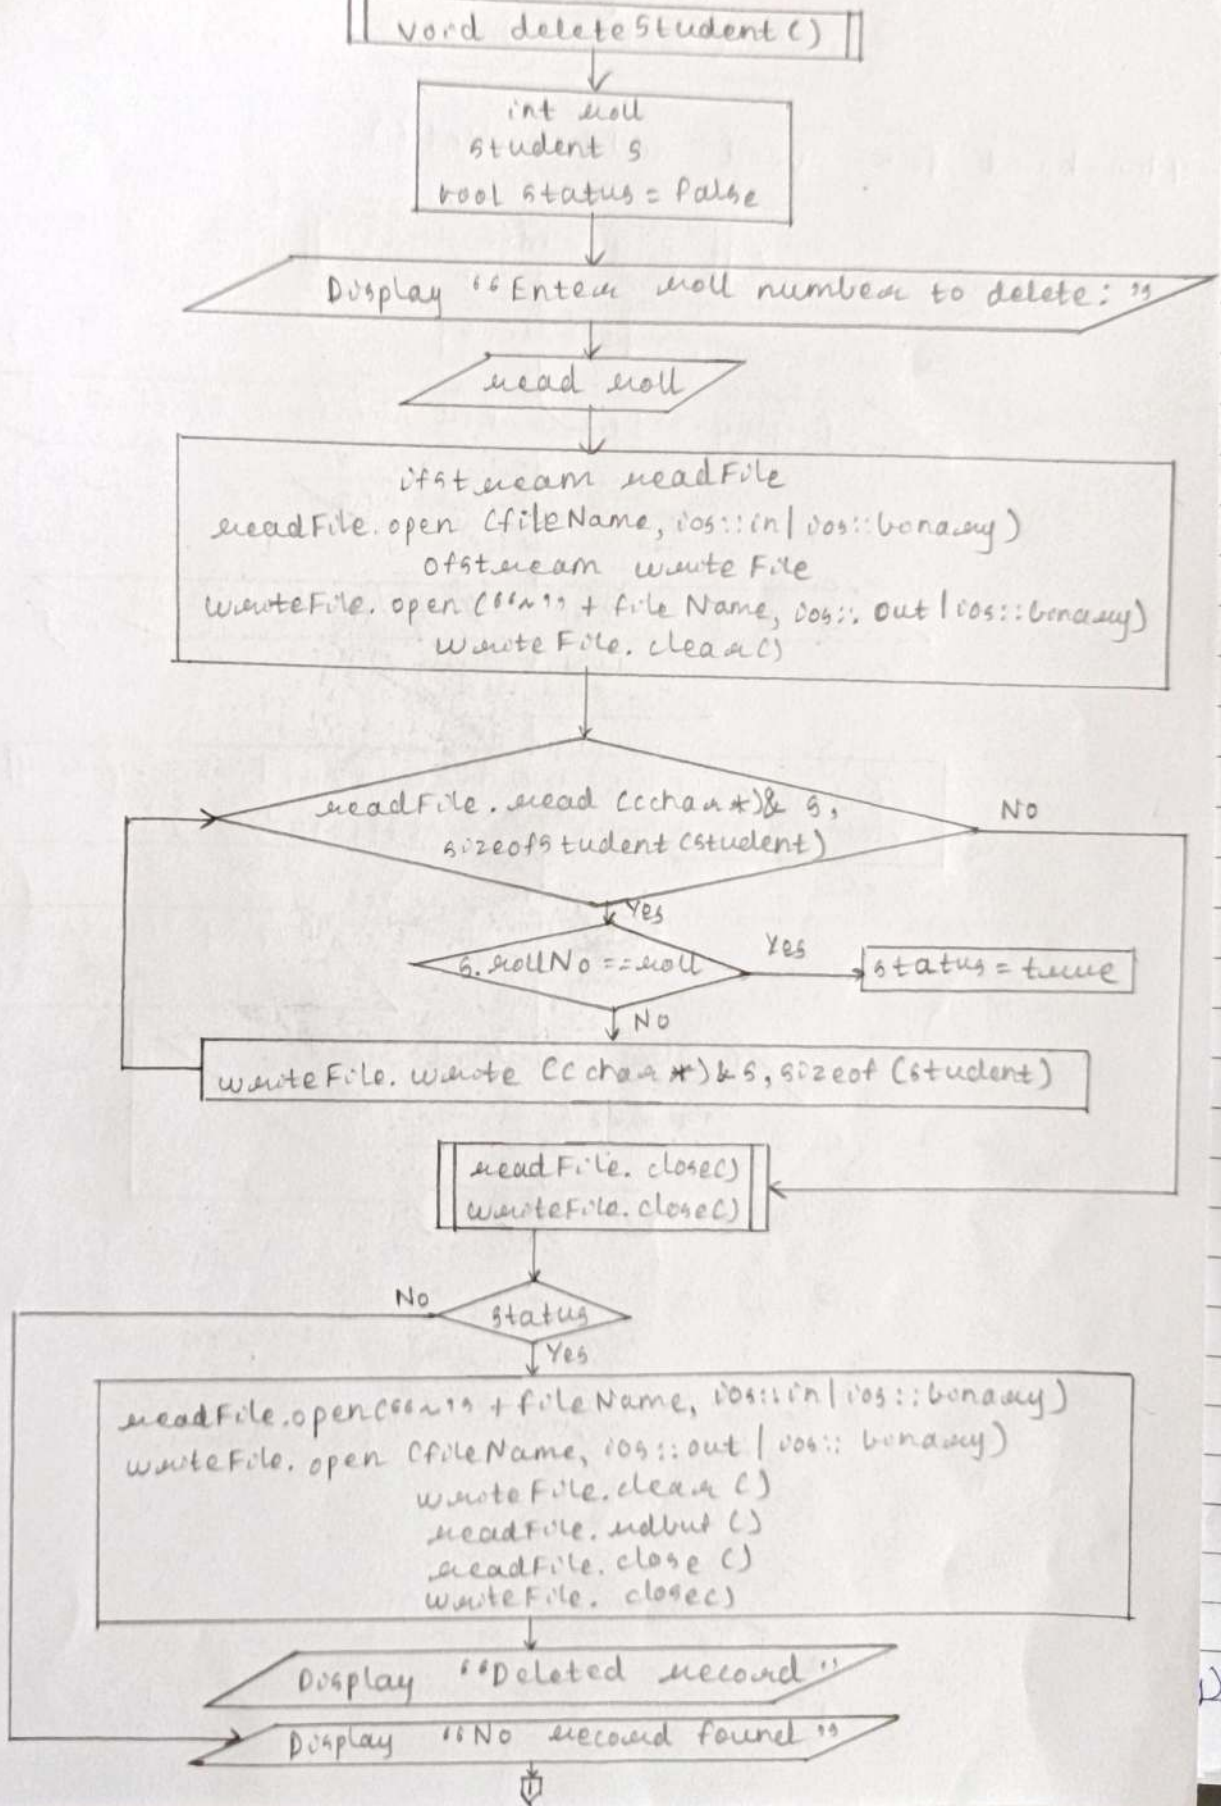 void deleteStudent()
int roll
student s
bool status = false
Display "Enter roll number to delete: "
read roll
ifstream readFile
readFile.open (fileName, ios::in | ios::binary)
ofstream writeFile
writeFile.open ("~" + fileName, ios::out | ios::binary)
writeFile.clear()
readFile.read ((char*)& s,
sizeofstudent (student)
No
Yes
s.rollNo == roll
Yes
status = true
No
writeFile.write ((char*)& s, sizeof (student)
readFile.close()
writeFile.close()
No
status
Yes
readFile.open("~" + fileName, ios::in | ios::binary)
writeFile.open (fileName, ios::out | ios:: binary)
writeFile.clear ()
readFile.rdbuf ()
readFile.close ()
writeFile. close()
Display "Deleted record"
Display "No record found"
1